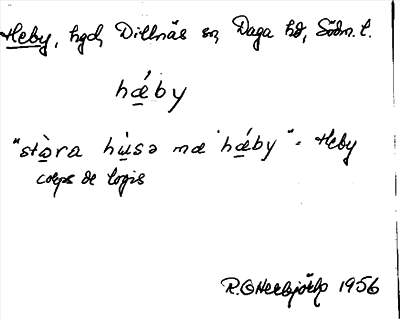 Heby, hgd, Dillnäs sn, Daga hd, Södm. l.
hǽby
"stò̱ra hù̱sə næ hǽby" - Heby
corps de logis
R. O Heckzjörlz 1956